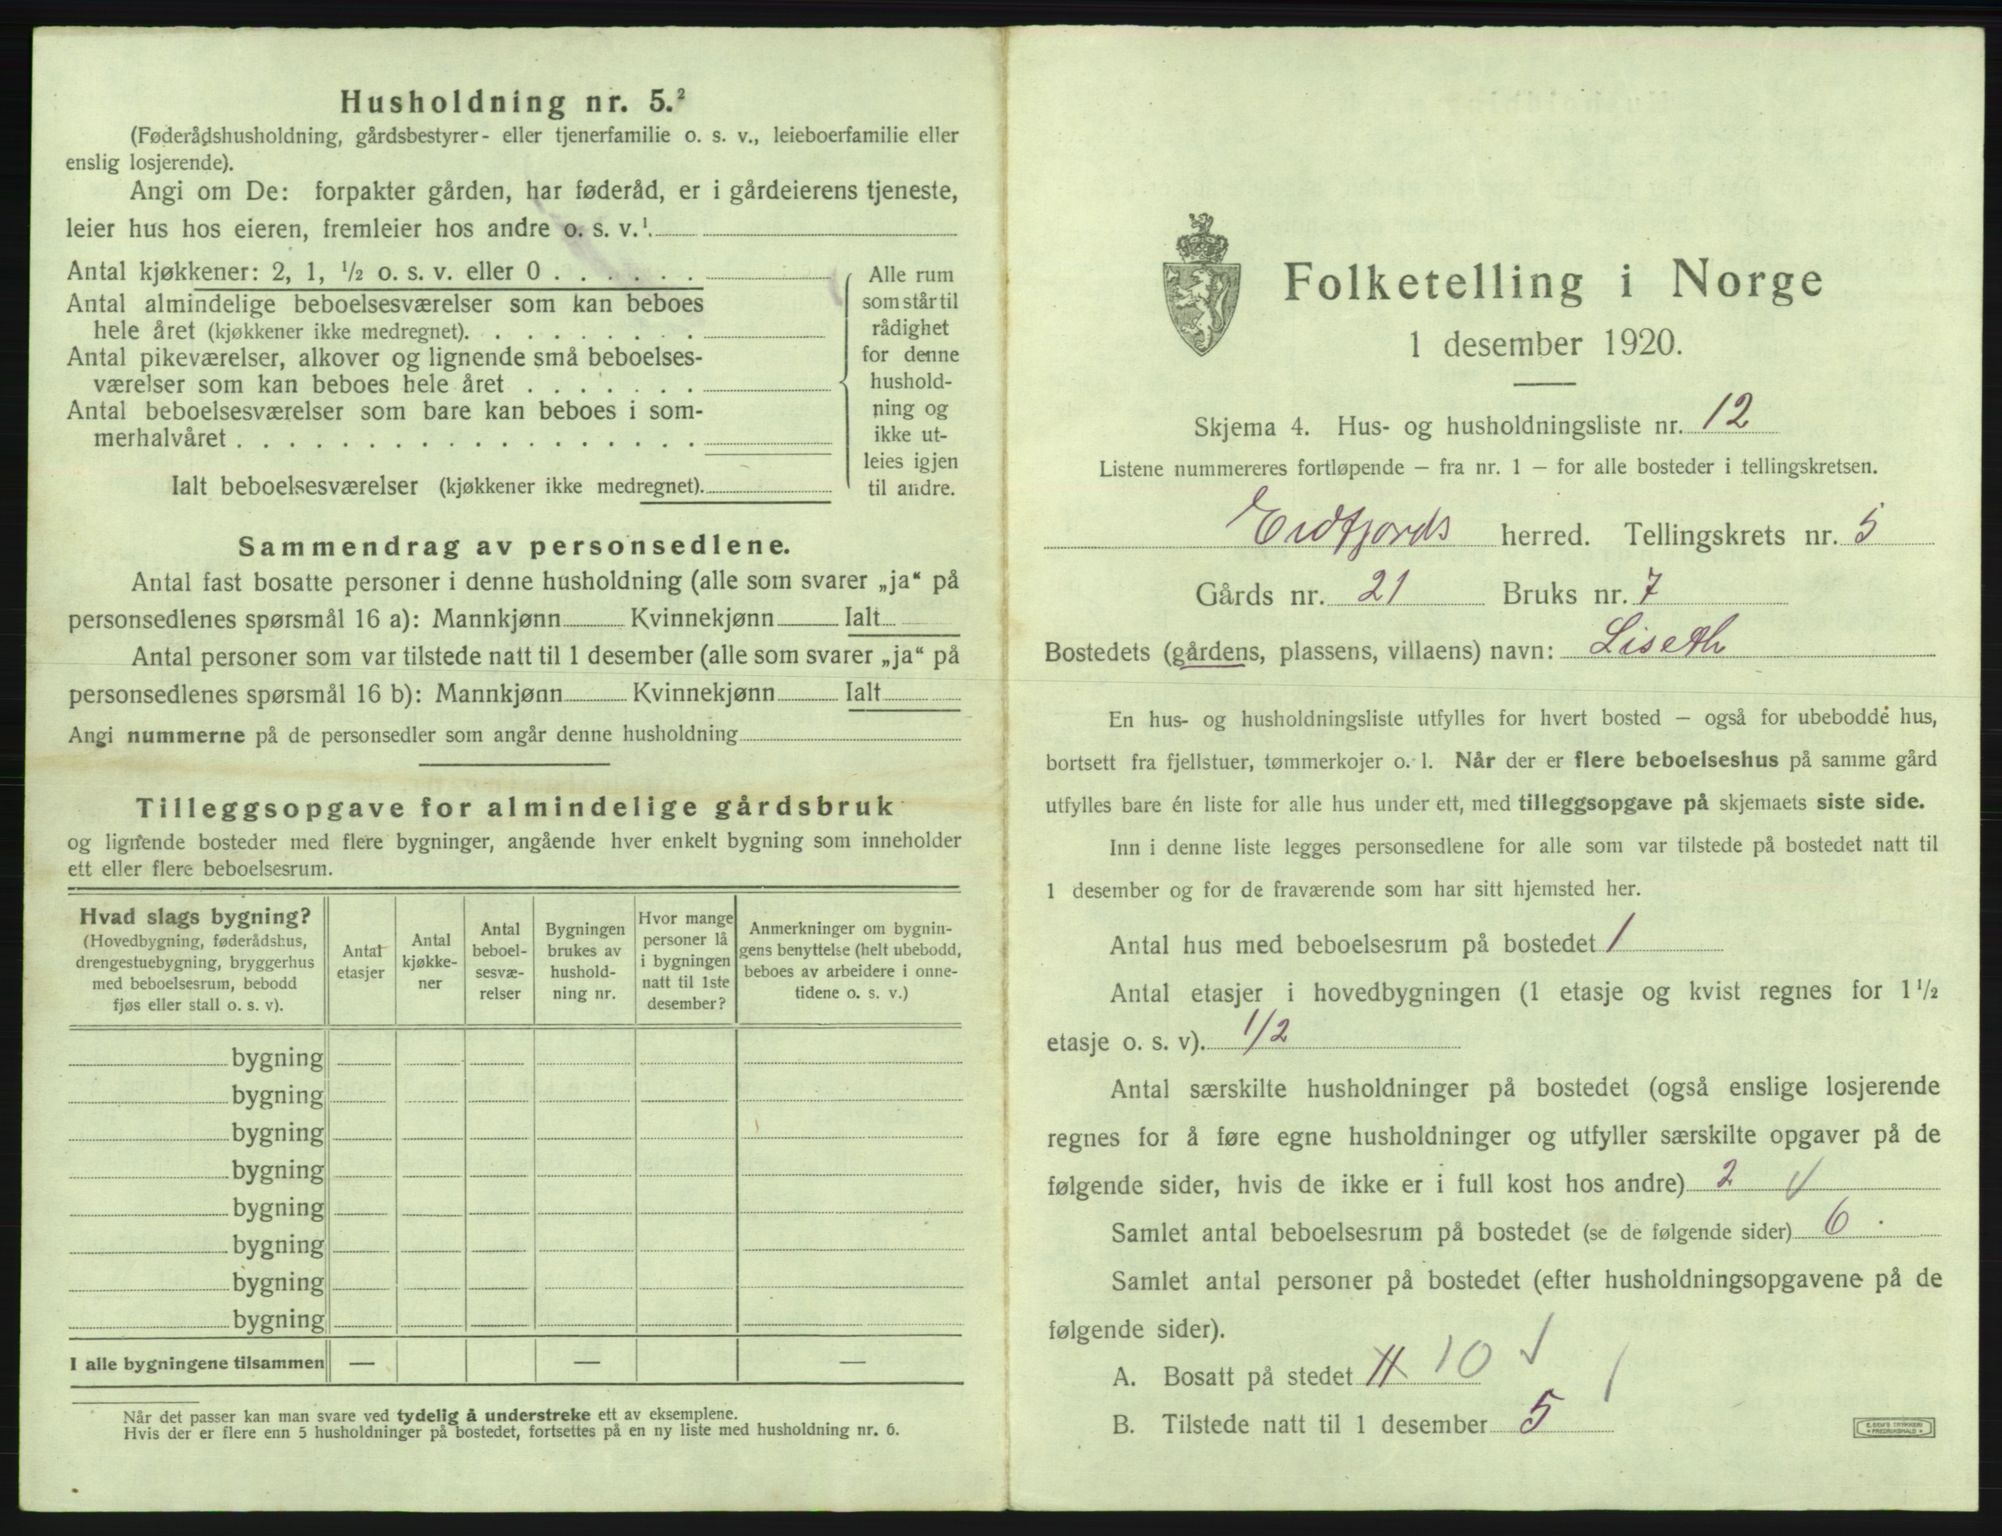 Husholdning nr. 5.²
(Føderådshusholdning, gårdsbestyrer- eller tjenerfamilie o. s. v., leieboerfamilie eller
enslig losjerende).
Angi om De: forpakter gården, har føderåd, er i gårdeierens tjeneste,
leier hus hos eieren, fremleier hos andre o. s. v.¹
Antal kjøkkener: 2, 1, ½ o. s. v. eller 0 . . . . . .
Antal almindelige beboelsesværelser som kan beboes
hele året (kjøkkener ikke medregnet). . . . . . . . .
Antal pikeværelser, alkover og lignende små beboelses-
værelser som kan beboes hele året . . . . . . .
Antal beboelsesværelser som bare kan beboes i som-
merhalvåret . . . . . . . . . . . . . . . . .
Ialt beboelsesværelser (kjøkkener ikke medregnet).
Alle rum
som står til
rådighet
for denne
hushold-
ning og
ikke ut-
leies igjen
til andre.
Sammendrag av personsedlene.
Antal fast bosatte personer i denne husholdning (alle som svarer „ja“ på
personsedlenes spørsmål 16 a): Mannkjønn Kvinnekjønn Ialt
Antal personer som var tilstede natt til 1 desember (alle som svarer „ja“ på
personsedlenes spørsmål 16 b): Mannkjønn Kvinnekjønn Ialt
Angi nummerne på de personsedler som angår denne husholdning
Tilleggsopgave for almindelige gårdsbruk
og lignende bosteder med flere bygninger, angående hver enkelt bygning som inneholder
ett eller flere beboelsesrum.
Hvad slags bygning?
(Hovedbygning, føderådshus,
drengestuebygning, bryggerhus
med beboelsesrum, bebodd
fjøs eller stall o. s. v).
Antal
etasjer
Antal
kjøkke-
ner
Antal
beboel-
sesvæ-
relser
Bygningen
brukes av
hushold-
ning nr.
Hvor mange
personer lå
i bygningen
natt til 1ste
desember?
Anmerkninger om bygnin-
gens benyttelse (helt ubebodd,
beboes av arbeidere i onne-
tidene o. s. v.)
bygning
bygning
bygning
bygning
bygning
bygning
bygning
bygning
I alle bygningene tilsammen — — —
Når det passer kan man svare ved tydelig å understreke ett av eksemplene.
Hvis der er flere enn 5 husholdninger på bostedet, fortsettes på en ny liste med husholdning nr. 6.
Folketelling i Norge
1 desember 1920.
Skjema 4. Hus- og husholdningsliste nr. 12
Listene nummereres fortløpende — fra nr. 1 — for alle bosteder i tellingskretsen.
Eidfjords herred. Tellingskrets nr. 5
Gårds nr. 21 Bruks nr. 7
Bostedets (gårdens, plassens, villaens) navn: Liseth
En hus- og husholdningsliste utfylles for hvert bosted — også for ubebodde hus,
bortsett fra fjellstuer, tømmerkojer o. l. Når der er flere beboelseshus på samme gård
utfylles bare én liste for alle hus under ett, med tilleggsopgave på skjemaets siste side.
Inn i denne liste legges personsedlene for alle som var tilstede på bostedet natt til
1 desember og for de fraværende som har sitt hjemsted her.
Antal hus med beboelsesrum på bostedet 1
Antal etasjer i hovedbygningen (1 etasje og kvist regnes for 1 ½
etasje o. s. v). 1/2
Antal særskilte husholdninger på bostedet (også enslige losjerende
regnes for å føre egne husholdninger og utfyller særskilte opgaver på de
følgende sider, hvis de ikke er i full kost hos andre) 2 √
Samlet antal beboelsesrum på bostedet (se de følgende sider) 6
Samlet antal personer på bostedet (efter husholdningsopgavene på de
følgende sider).
A. Bosatt på stedet 11 10 √
B. Tilstede natt til 1 desember 5 /
E. SEM'S TRYKKERI
FREDRIKSHALD